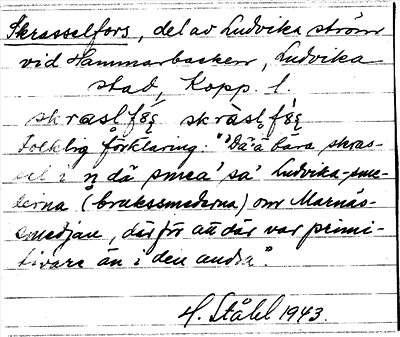 Skrasselfors, del av Ludvika ström
vid Hammarbacken, Ludvika
stad, Kopp. l.
skrasl fȯ́ʂ skràsl fȯ́ʂ
Folklig förklaring: "Dä'ä bara skras-
sel i n dä smea' sa' Ludvika-sme-
derna (brukssmederna) om Marnäs-
smedjan, därför att där var primi-
tivare än i den andra".
H. Ståhl 1943.